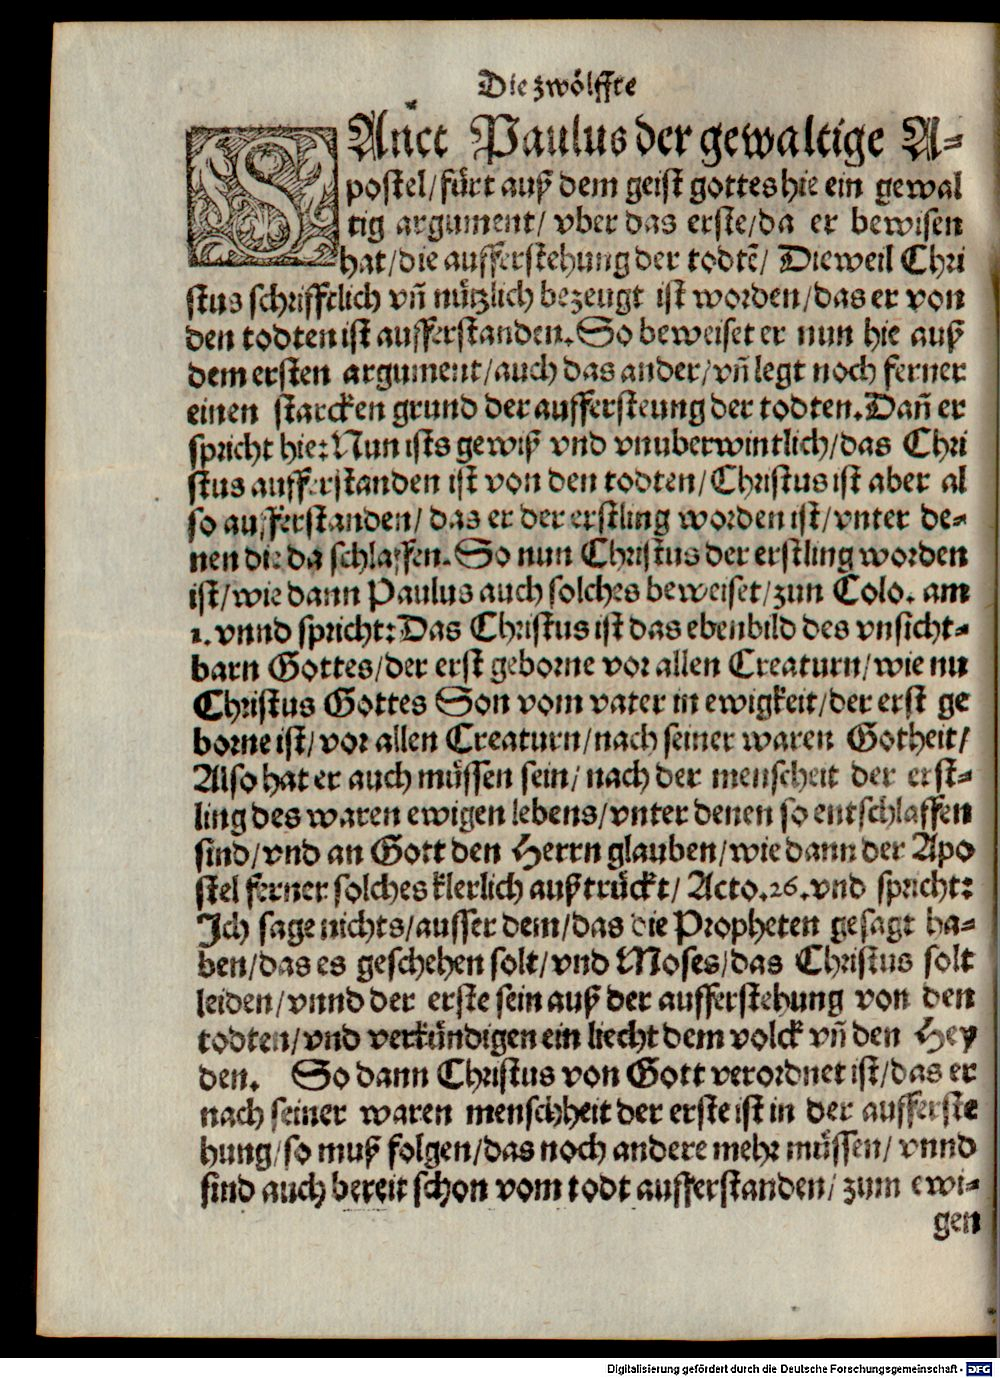 Die zwölffte
SAnct Paulus der gewaltige A-
postel/fürt auß dem geist gottes hie ein gewal
tig argument/ vber das erste/da er bewisen
hat/die aufferstehung der todtē/ Dieweil Chri
stus schrifftlich vn̄ nützlich bezeugt ist worden/das er von
den todten ist aufferstanden. So beweiset er nun hie auß
dem ersten argument/auch das ander/vn̄ legt noch ferner
einen starcken grund der auffersteung der todten. Dan̄ er
spricht hie: Nun ists gewiß vnd vnuberwintlich/das Chri
stus aufferstanden ist von den todten/Christus ist aber al
so aufferstanden/ das er der erstling worden ist/vnter de-
nen die da schlaffen. So nun Christus der erstling worden
ist/wie dann Paulus auch solches beweiset/zun Colo. am
1. vnnd spricht: Das Christus ist das ebenbild des vnsicht-
barn Gottes/der erst geborne vor allen Creaturn/wie nu
Christus Gottes Son vom vater in ewigkeit/der erst ge
borne ist/vor allen Creaturn/nach seiner waren Gotheit/
Also hat er auch müssen sein/nach der menscheit der erst-
ling des waren ewigen lebens/vnter denen so entschlaffen
sind/vnd an Gott den Herrn glauben/wie dann der Apo
stel ferner solches klerlich außtrückt/ Acto. 26. vnd spricht:
Ich sage nichts/ausser dem/das die Propheten gesagt ha-
ben/das es geschehen solt/vnd Moses/das Christus solt
leiden/vnnd der erste sein auß der aufferstehung von den
todten/vnd verkündigen ein liecht dem volck vn̄ den Hey
den. So dann Christus von Gott verordnet ist/das er
nach seiner waren menschheit der erste ist in der aufferste
hung/so muß folgen/das noch andere mehr müssen/ vnnd
sind auch bereit schon vom todt aufferstanden/ zum ewi-
gen
Digitalisierung gefördert durch die Deutsche Forschungsgemeinschaft - DFG